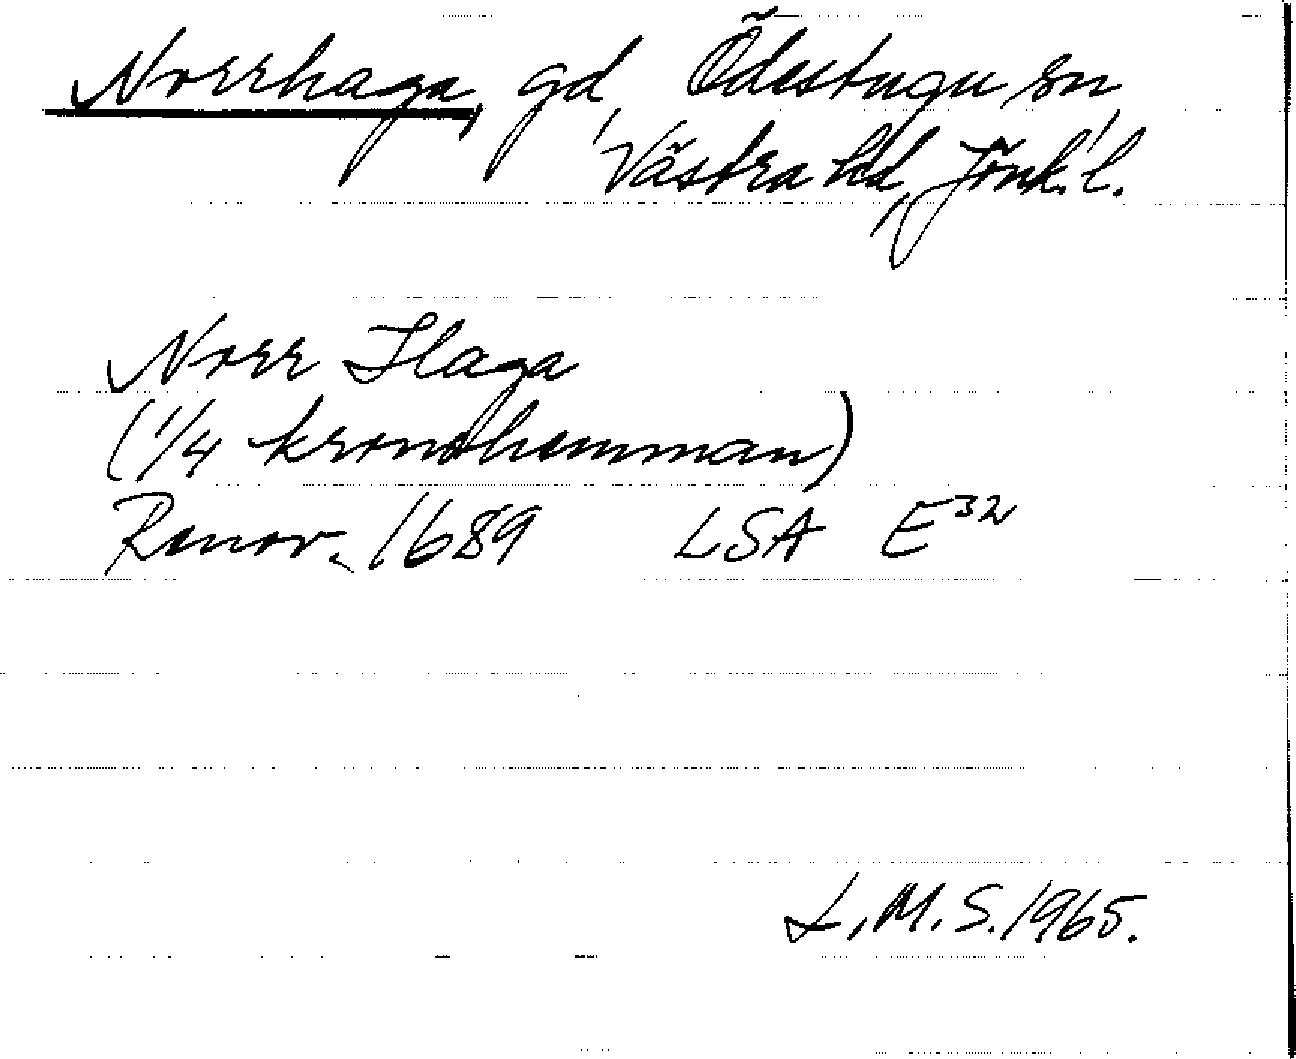 Norrhaga, gd, Ödestugu sn,
Västra hd, Jönk. l.
Norr Haga
(1/4 kronohemman)
Renov. 1689 LSA E32
L.M.S. 1965.